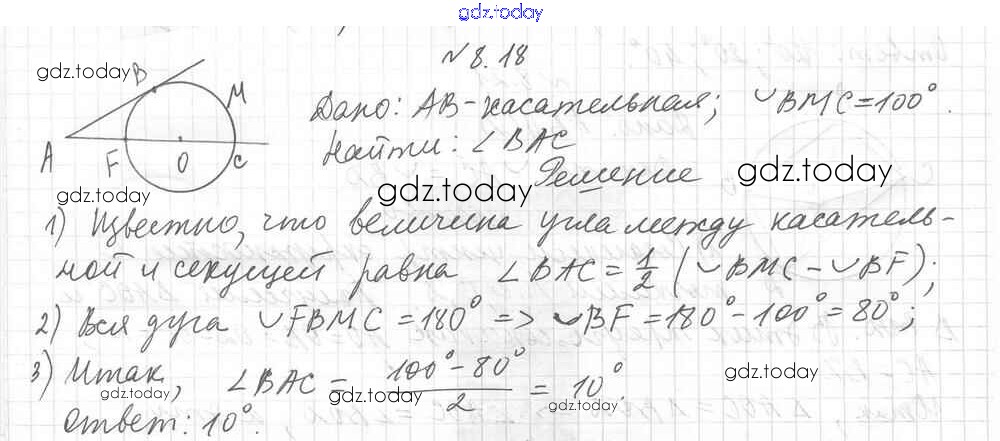 gdz.today
N 8.18
gdz.today B M
Дано: AB - касательная; ◡BMC = 100°.
A F O C
Найти: ∠BAC
gdz.today gdz.today gdz.today
Решение
1) Известно, что величина угла между касатель-
ной и секущей равна ∠BAC = 1/2 (◡BMC - ◡BF);
2) Вся дуга ◡FBMC = 180° => ◡BF = 180° - 100° = 80°;
3) Итак, ∠BAC = (100° - 80°)/2 = 10°.
gdz.today gdz.today gdz.today
Ответ: 10°.